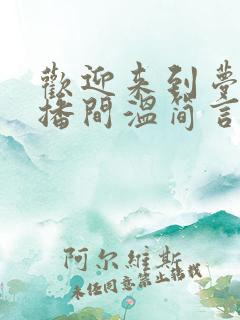 歡迎来到夢
播間温简言
阿尔維斯
未经同意禁止转载